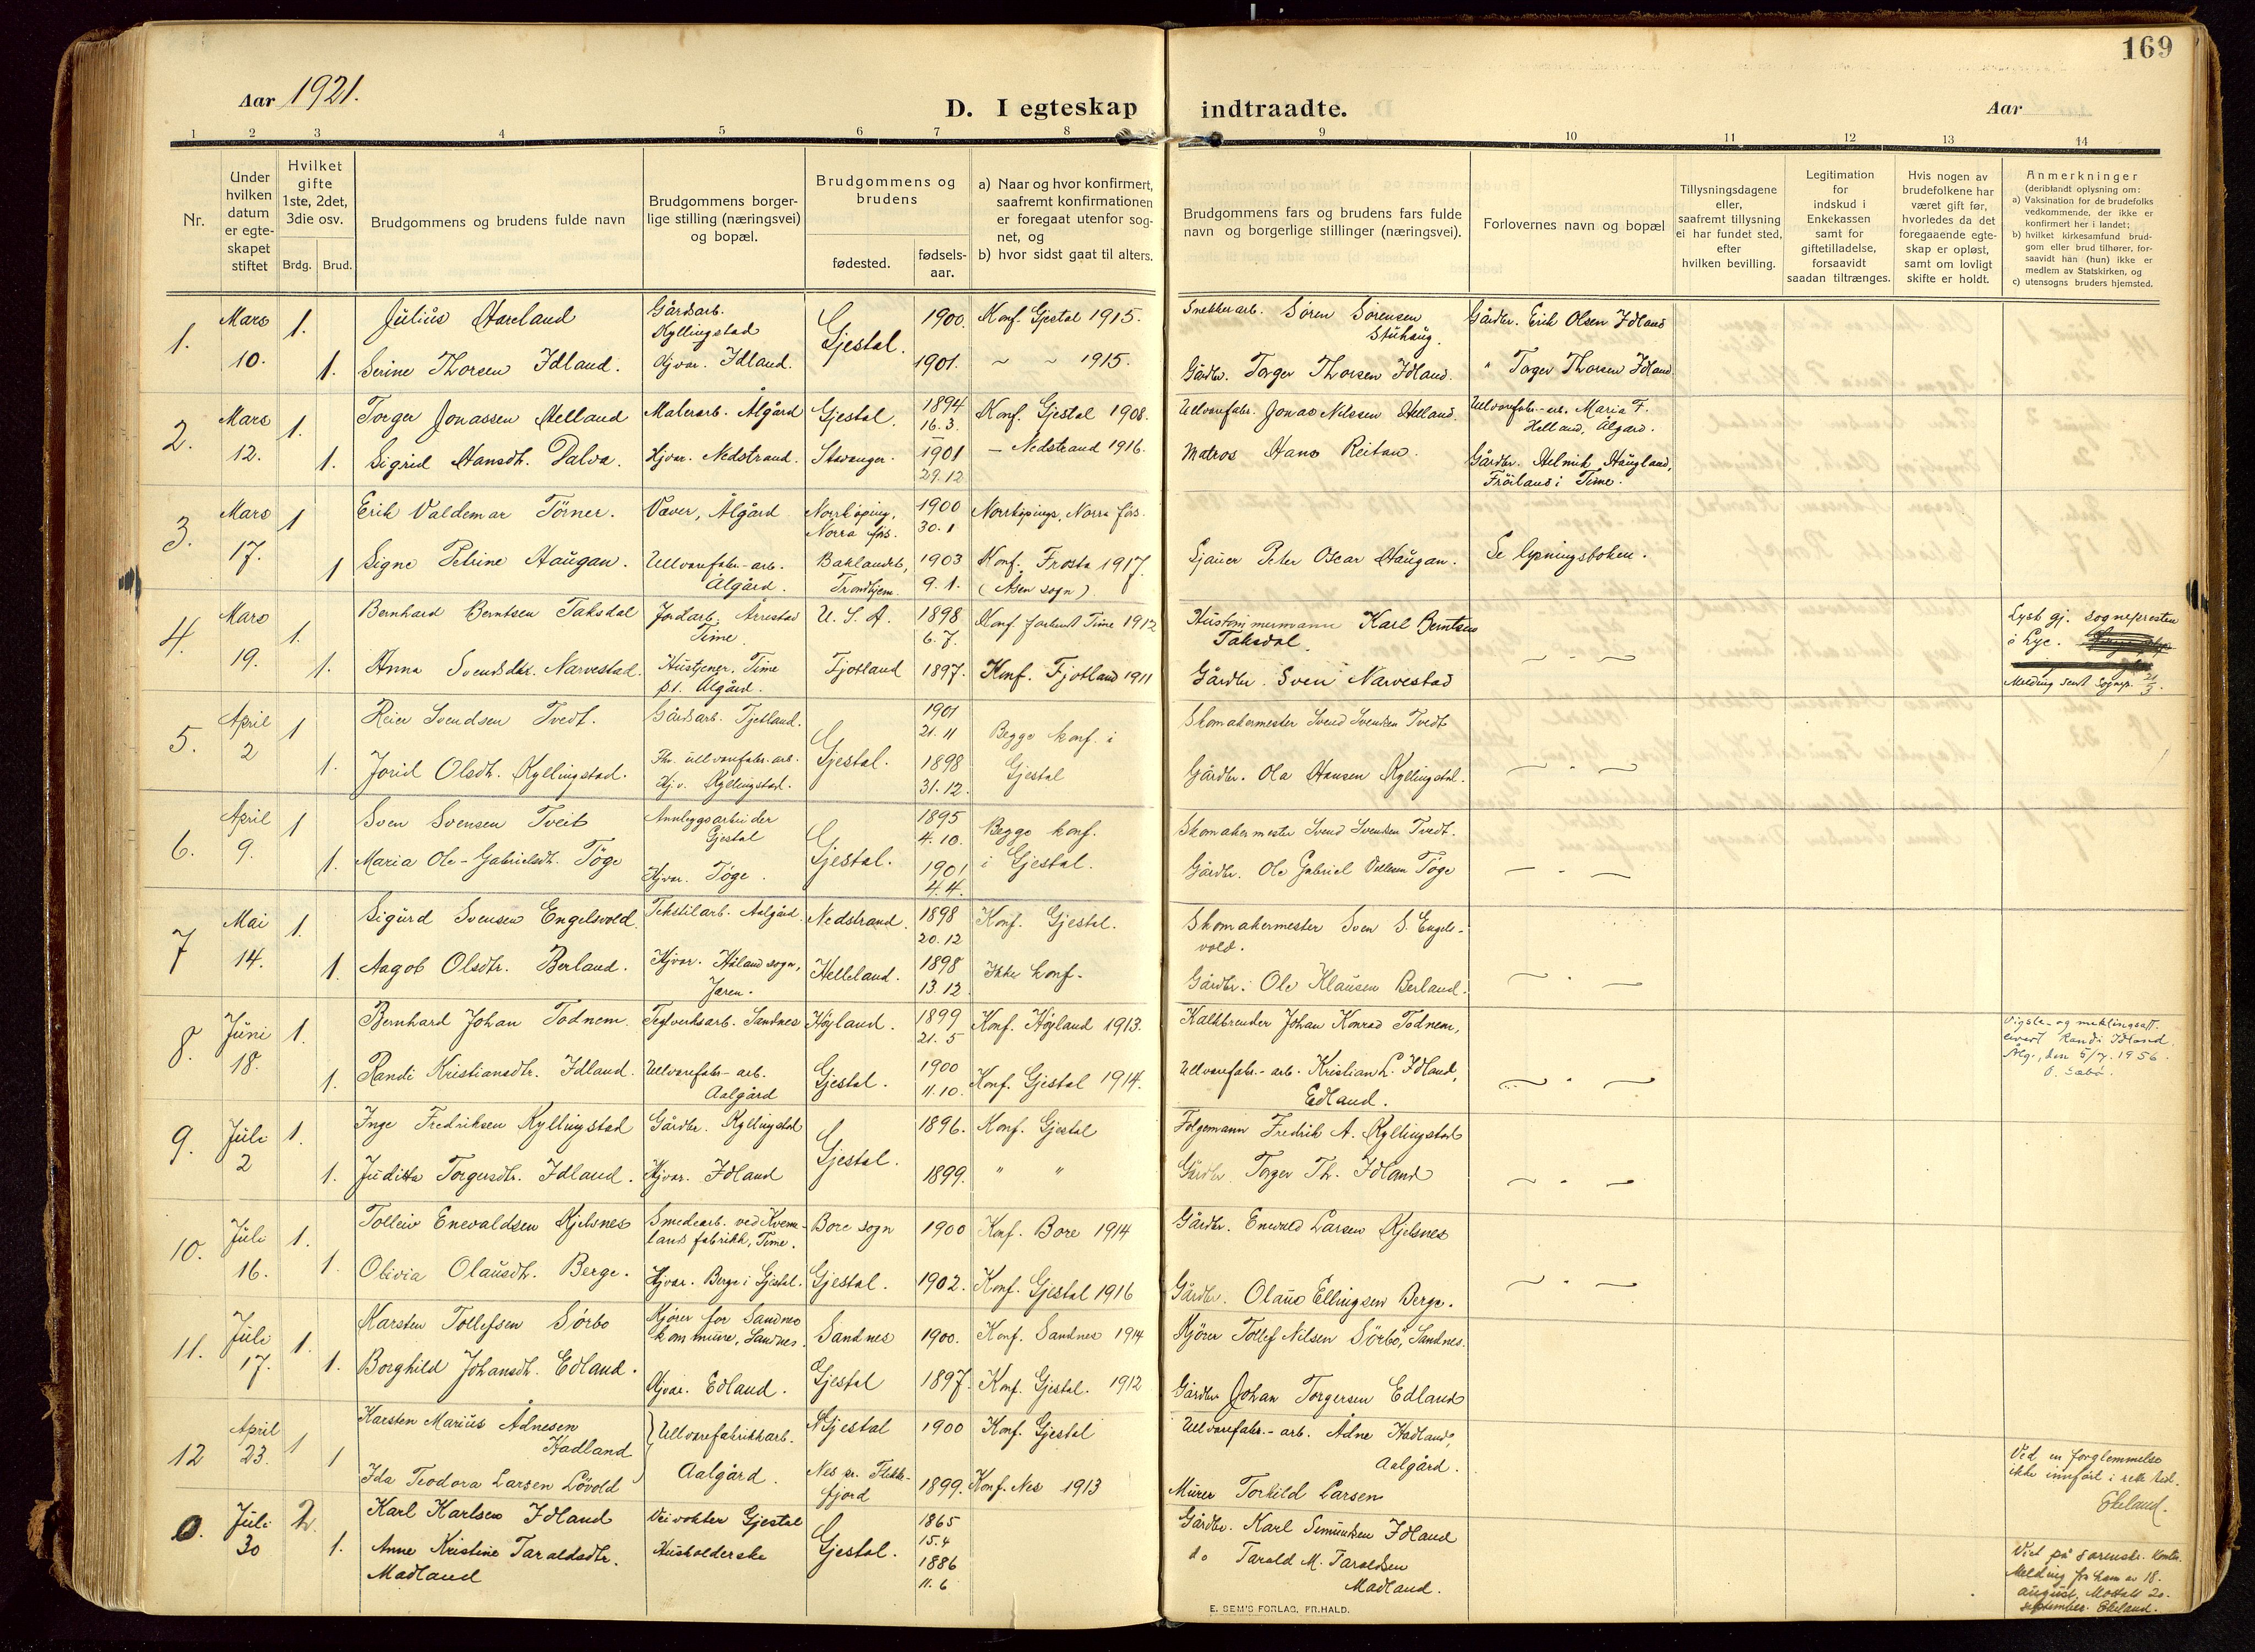 169
Aar 1921.
D. I egteskap indtraadte.
Aar
1 2 3 4 5 6 7 8 9 10 11 12 13 14
Nr.
Under hvilken datum er egteskapet stiftet
Hvilket gifte 1ste, 2det, 3die osv.
Brdg. Brud.
Brudgommens og brudens fulde navn
Brudgommens borgerlige stilling (næringsvei) og bopæl.
Brudgommens og brudens
fødested.
fødselsaar.
a) Naar og hvor konfirmert, saafremt konfirmationen er foregaat utenfor sognet, og
b) hvor sidst gaat til alters.
Brudgommens fars og brudens fars fulde navn og borgerlige stillinger (næringsvei).
Forlovernes navn og bopæl
Tillysningsdagene eller, saafremt tillysning ei har fundet sted, efter hvilken bevilling.
Legitimation for indskud i Enkekassen samt for giftetilladelse, forsaavidt saadan tiltrænges.
Hvis nogen av brudefolkene har været gift før, hvorledes da det foregaaende egteskap er opløst, samt om lovligt skifte er holdt.
Anmerkninger
(deriblandt oplysning om:
a) Vaksination for de brudefolks vedkommende, der ikke er konfirmert her i landet;
b) hvilket kirkesamfund brudgom eller brud tilhører, forsaavidt han (hun) ikke er medlem av Statskirken, og
c) utensogns bruders hjemsted.
1. Mars 10. 1. Julius Hareland Gårdsarb. Kyllingstad Gjestal. 1900. Konf. Gjestal 1915. Snekkerarb. Søren Sørensen Stuhaug. Gårdbr. Erik Olsen Idland
1. Serine Thorsen Idland. Hjvær. Idland. 1901. ~ ~ 1915. Gårdbr. Torger Thorsen Idland. " Torger Thorsen Idland
2. Mars 12. 1. Torger Jonassen Helland Malerarb. Ålgård Gjestal. 1894 16.3. Konf. Gjestal 1908. Uldvarefabr. Jonas Nilssen Helland. Uldvarefabr.-arb. Maria T. Helland, Ålgård.
1. Sigrid Hansdtr. Dalva. Hjvær. Nedstrand. Stavanger. 1901 29.12 – Nedstrand 1916. Matros Hans Reitan. Gårdbr. Helmik Haugland, Frøiland i Time.
3. Mars 17. 1 Erik Valdemar Törner. Væver, Ålgård Norrköping, Norra förs. 1900 30.1 Norrköpings, Norra förs.
1 Signe Petrine Haugan. Ullvarefabr.-arb. Ålgård. Baklandet, Trondhjem. 1903 9.1. Konf. Frosta 1917. (Åsen sogn). Sjauer Peter Oscar Haugan. Se lysningsboken.
4. Mars 19. 1. Bernhard Berntsen Taksdal Jordarb. Årrestad Time U. S. A. 1898 6.7. Konf. Time 1912 Hustømmermann Karl Berntsen Taksdal.
Lyst gj. sognepresten i Lye.
Melding sent sognepr. 21/3.
1. Anna Svendsdtr. Narvestad. Hustjener. Time p.t. Ålgård. Fjotland 1897. Konf. Fjotland 1911 Gårdbr. Sven Narvestad
5. April 2 1 Reier Svendsen Tvedt. Gårdsarb. Tjetland. Gjestal. 1901 21.11 Begge konf. i Gjestal Skomakermester Svend Svendsen Tvedt
1. Jorid Olsdtr. Kyllingstad. Fhv. ullvarefabr.-arb. Hj.v. Kyllingstad. 1898 31.12. Gårdbr. Ola Hansen Kyllingstad.
6. April 9. 1 Sven Svensen Tveit Annleggsarbeider Gjestal Gjestal. 1895 4.10. Begge konf. i Gjestal. Skomakermester Svend Svendsen Tvedt.
1. Maria Ole-Gabrielsdtr. Töge Hjvær. Töge. 1901 4.4. Gårdbr. Ole Gabriel Töge
7 Mai 14. 1. Sigurd Svensen Engelsvold. Tekstilarb. Aalgård. Nedstrand. 1898 20.12 Konf. Gjestal. Skomakermester Sven S. Engelsvold.
1. Aagot Olsdtr. Berland. Hjvær. Håland sogn, Jæren. Helleland. 1898 13.12 Ikke konf. Gårdbr. Ole Klausen Berland.
8. Juni 18. 1. Bernhard Johan Todnem. Teglverksarb. Sandnes Höyland. 1899 21.5 Konf. Höyland 1913. Kalkbrender Johan Konrad Todnem,
Vigsle- og meklingsatt. levert Randi Idland. Ålg., den 5/7.1956. O. Sæbø.
1. Randi Kristiansdtr. Idland. Ullvarefabr.-arb. Aalgård Gjestal. 1900 11.10. Konf. Gjestal 1914. Ullvarefabr.-arb. Kristian L. Idland, Edland.
9. Juli 2 1. Inge Fredriksen Kyllingstad Gårdbr. Kyllingstad Gjestal. 1896. Konf. Gjestal Folgemann Fredrik A. Kyllingstad
1. Juditta Torgersdtr. Idland. Hjvær. Idland 1899. " " Gårdbr. Torger Th. Idland
10. Juli 16. 1. Tolleiv Enevaldsen Kjelsnes Smedearb. ved Kvernelands fabrikk, Time. Bore sogn 1900 Konf. Bore 1914 Gårdbr. Enevald Larsen Kjelsnes
1. Olivia Olausdtr. Berge. Hjvær. Berge i Gjestal. Gjestal. 1902. Konf. Gjestal 1916 Gårdbr. Olaus Ellingsen Berge.
11. Juli 17. 1. Karsten Tollefsen Sörbø Kjörer for Sandnes kommune, Sandnes. Sandnes 1900. Konf. Sandnes 1914 Kjörer Tollef Nilsen Sörbö, Sandnes.
1. Borghild Johansdtr. Edland. Hjvær. Edland. Gjestal 1897. Konf. Gjestal. 1912 Gårdbr. Johan Torgersen Edland
12 April 23. 1 Karsten Marius Ådnesen Hadland Ullvarefabrikkarb. Aalgård. Gjestal 1900 Konf. Gjestal Ullvarefabr.-arb. Ådne Hadland, Aalgård.
Ved en forglemmelse ikke innført i rett tid. Ekeland.
1 Ida Teodora Larsen Lövold Nes pr. Flekkefjord 1899. Konf. Nes 1913 Murer Torkild Larsen
0. Juli 30 2. Karl Karlsen Idland Veivokter Gjestal Gjestal. 1865 15.4 Gårdbr. Karl Simunsen Idland
1. Anne Kristine Taraldsdtr. Madland Husholderske 1886 11.6 do Tarald M. Taraldsen Madland.
Viet på sorenskr. kontr. Melding fra ham av 18. august. Mottatt 20. september. Ekeland.
E. SEM'S FORLAG, FR.HALD.